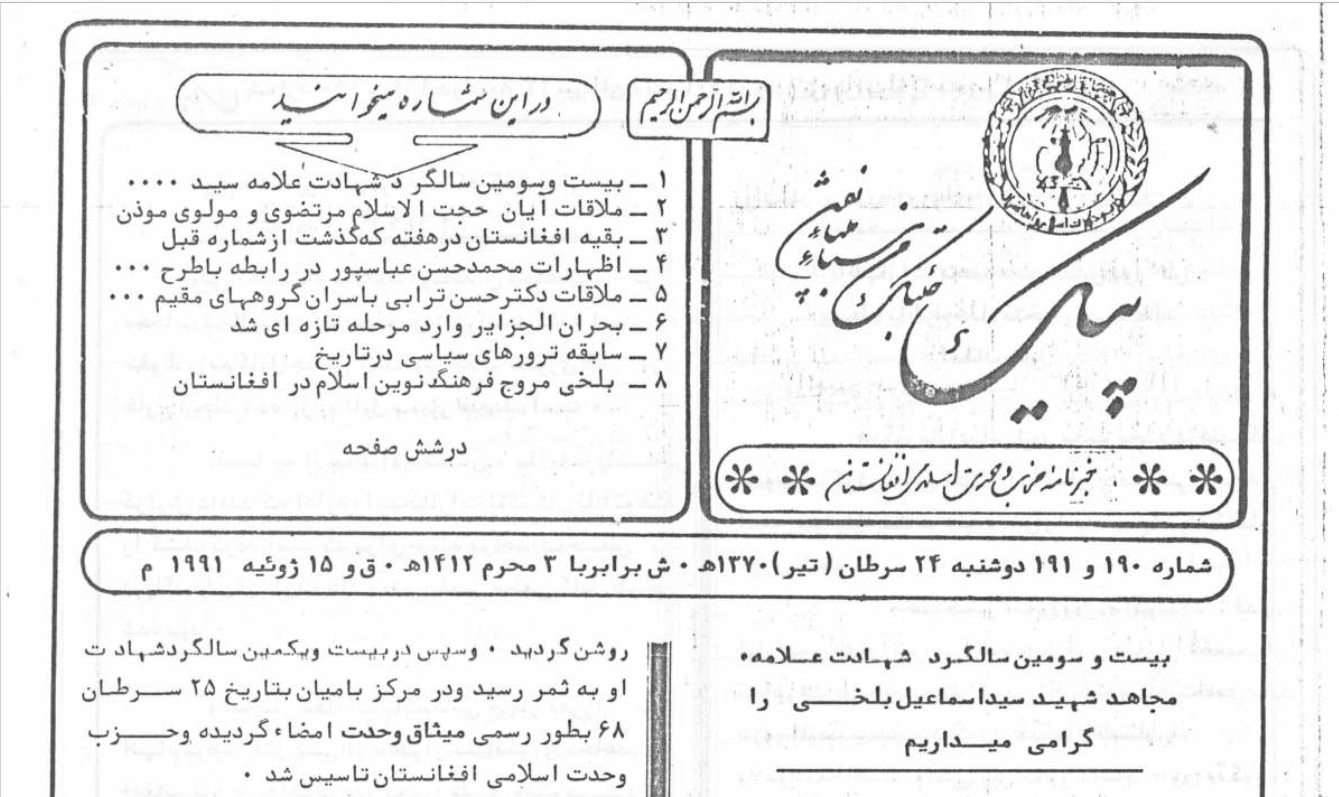 بسم الله الرحمن الرحیم
پیام
خبرنامه حزب وحدت اسلامی افغانستان
در این شماره میخوانید
۱ ــ بیست وسومین سالگر د شهادت علامه سید ۰۰۰۰
۲ ــ ملاقات آیان حجت الاسلام مرتضوی و مولوی موذن
۳ ــ بقیه افغانستان درهفته که گذشت ازشماره قبل
۴ ــ اظهارات محمدحسن عباسپور در رابطه باطرح ۰۰۰
۵ ــ ملاقات دکترحسن ترابی باسران گروههای مقیم ۰۰۰
۶ ــ بحران الجزایر وارد مرحله تازه ای شد
۷ ــ سابقه ترورهای سیاسی درتاریخ
۸ ــ بلخی مروج فرهنگ نوین اسلام در افغانستان
درشش صفحه
شماره ۱۹۰ و ۱۹۱ دوشنبه ۲۴ سرطان (تیر) ۱۳۷۰ه‍ ۰ ش برابربا ۳ محرم ۱۴۱۲ه‍ ۰ ق و ۱۵ ژوئیه ۱۹۹۱ م
بیست و سومین سالگرد شهادت علامه۰
مجاهد شهید سیداسماعیل بلخی را
گرامی میداریم
روشن گردید ۰ وسپس دربیست ویکمین سالگردشهاد ت
او به ثمر رسید ودر مرکز بامیان بتاریخ ۲۵ سرطان
۶۸ بطور رسمی میثاق وحدت امضاء گردیده وحزب
وحدت اسلامی افغانستان تاسیس شد ۰